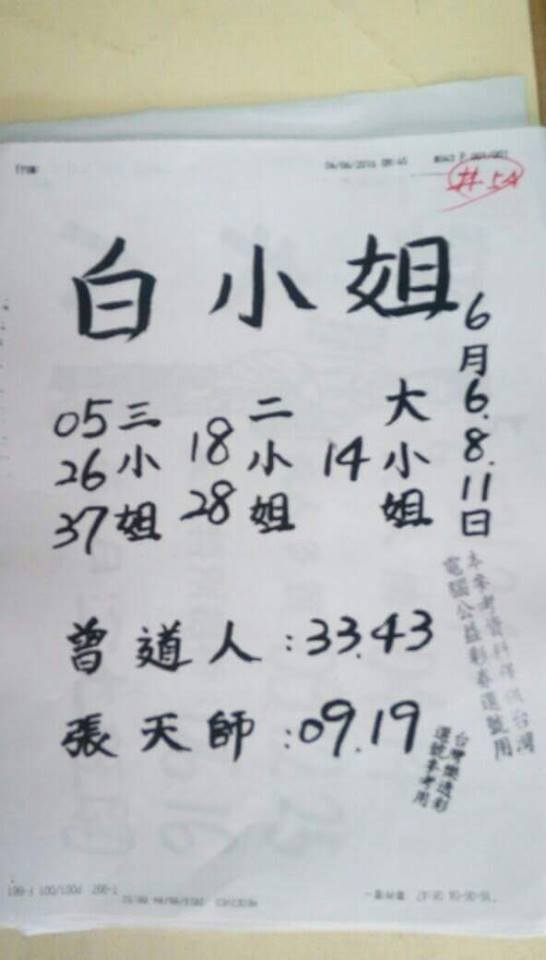 04/06/2016
#54
白小姐
6月6.8.11日
大小姐
14
二小姐
18
28
三小姐
05
26
37
曾道人:33.43
張天師:09.19
本參考資料僅供台灣
電腦公益彩券選號用
台灣樂透彩
選號參考用